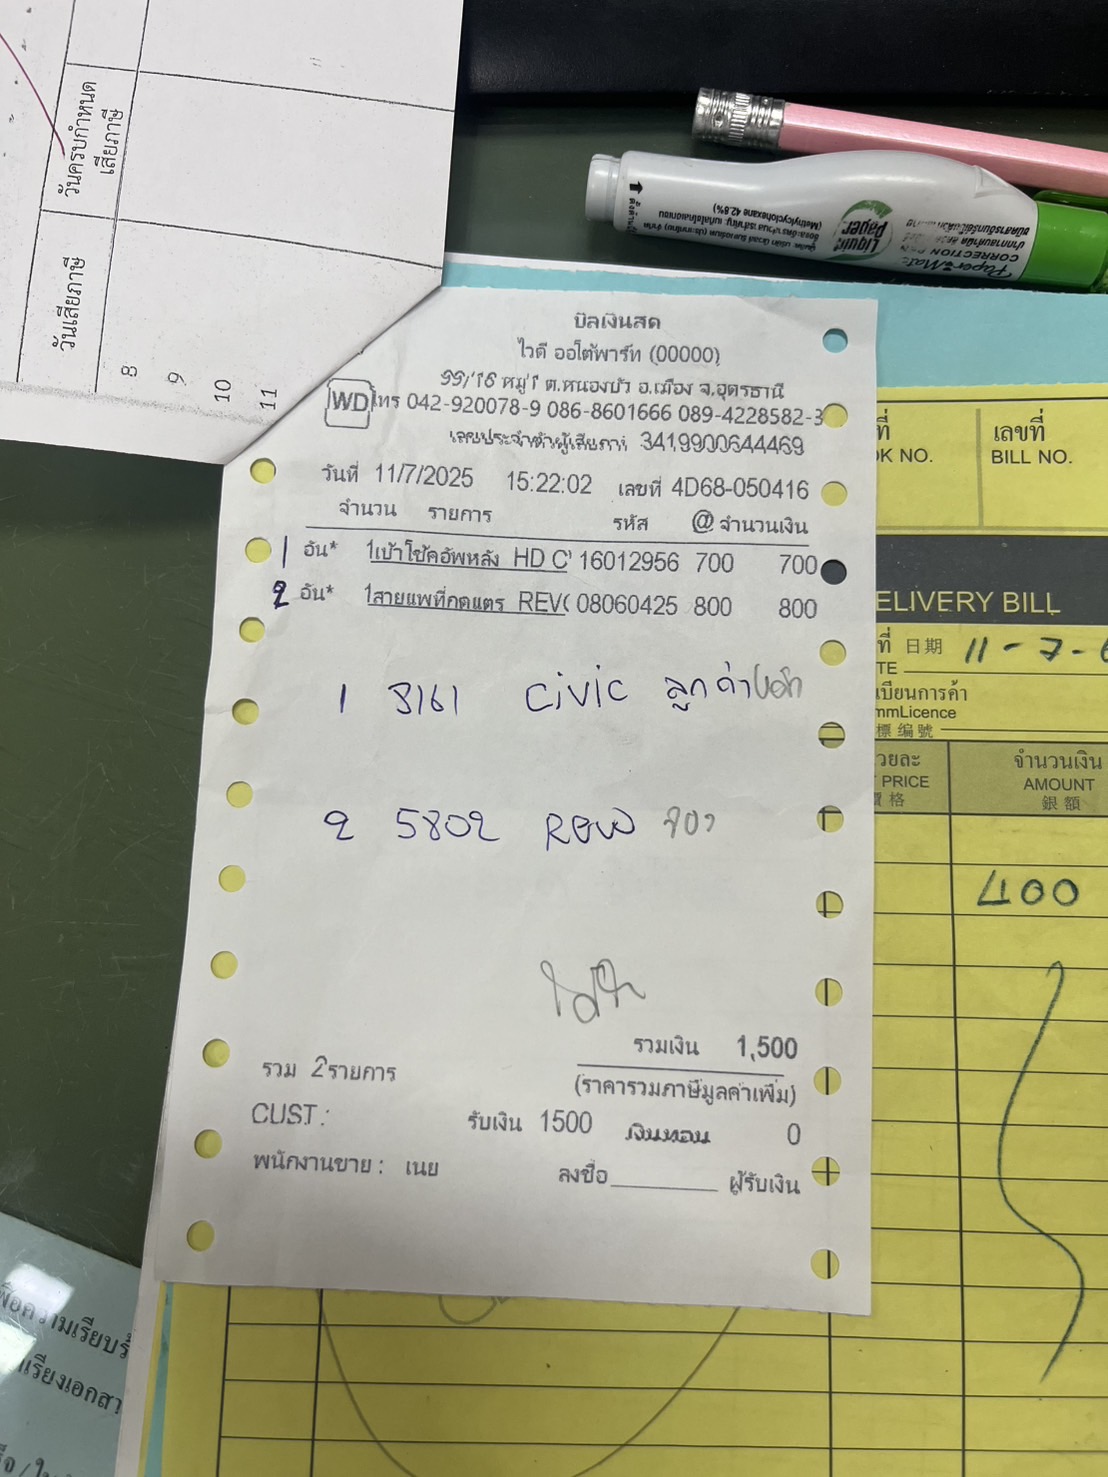 วันครบกำหนด
เสียภาษี
วันเสียภาษี
8
9
10
11
Liquid
Paper
Paper Mate
CORRECTION PEN
(Methylcyclohexane 42.8%)
บิลเงินสด
ไวดี ออโต้พาร์ท (00000)
99/18 หมู่1 ต.หนองบัว อ.เมือง จ.อุดรธานี
WD โทร 042-920078-9 086-8601666 089-4228582-3
เลขประจำตัวผู้เสียภาษี 3419900644469
วันที่ 11/7/2025 15:22:02 เลขที่ 4D68-050416
จำนวน รายการ รหัส @ จำนวนเงิน
1 อัน* 1เบ้าโช้คอัพหลัง HD C 16012956 700 700
2 อัน* 1สายแพที่กดแตร REV 08060425 800 800
1 3161 Civic ลูกค้า
2 5802 REVO จอง
รวมเงิน 1,500
รวม 2รายการ
(ราคารวมภาษีมูลค่าเพิ่ม)
CUST.:
รับเงิน 1500 เงินทอน 0
พนักงานขาย : เนย ลงชื่อ________ ผู้รับเงิน
ที่
OK NO.
เลขที่
BILL NO.
ELIVERY BILL
ที่ 日期 11-7-6
TE
เบียนการค้า
mmLicence
標編號
วยละ
PRICE
價格
จำนวนเงิน
AMOUNT
銀額
400
พื่อความเรียบร้
เรียงเอกสา